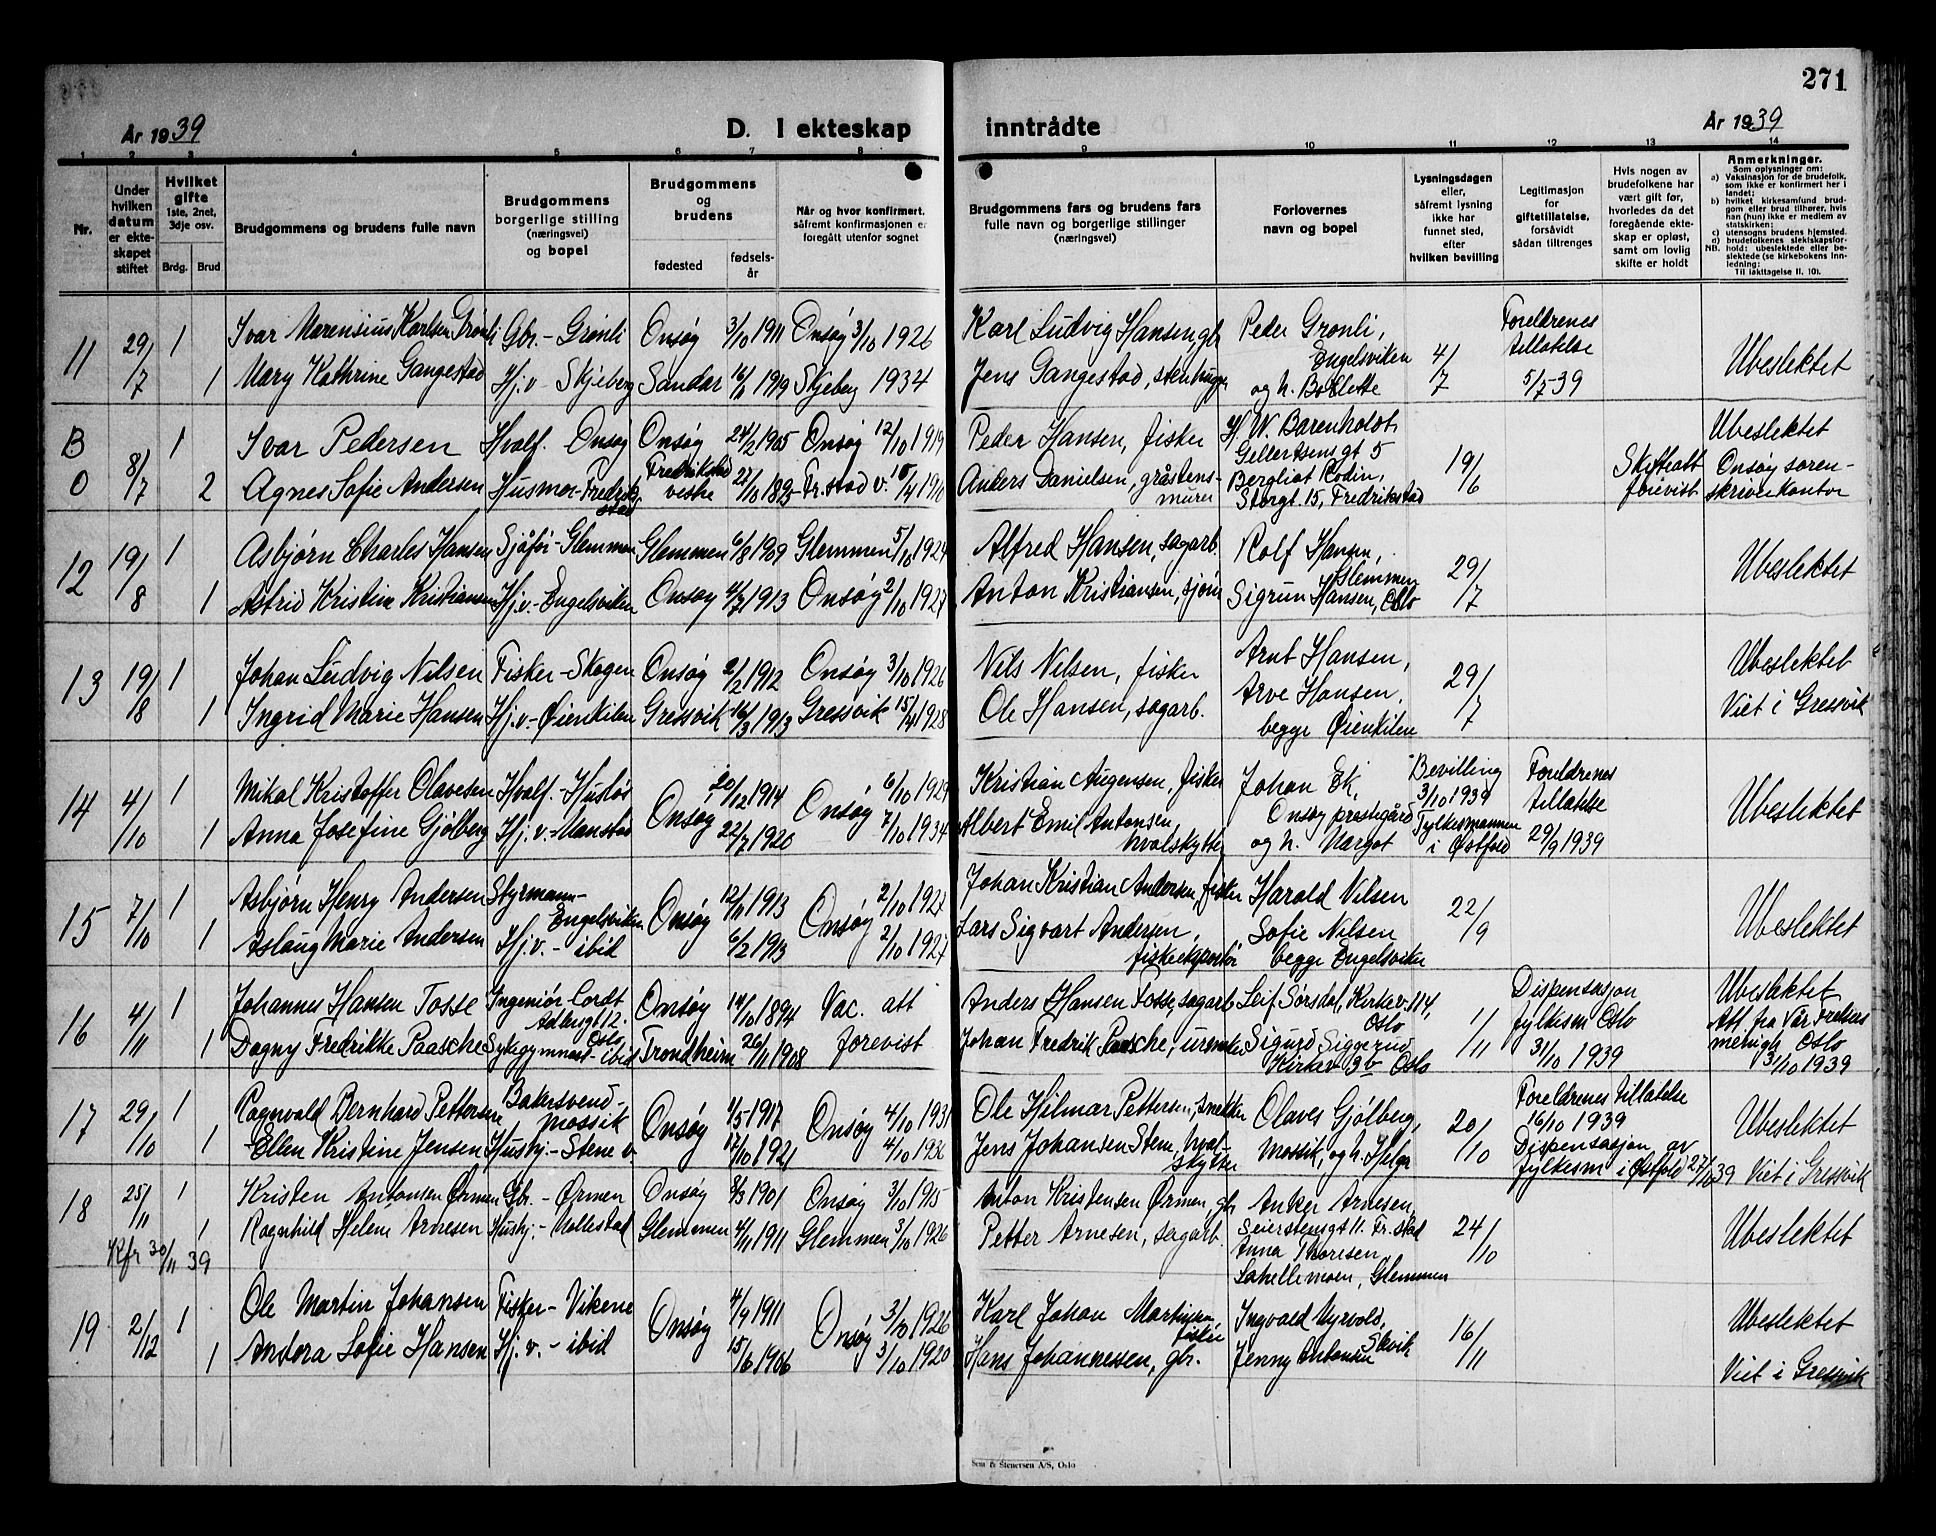 271
År 1939
D. I ekteskap inntrådte
År 1939
1 2 3 4 5 6 7 8 9 10 11 12 13 14
Nr.
Under hvilken datum er ekteskapet stiftet
Hvilket gifte 1ste, 2net, 3dje osv.
Brdg. Brud
Brudgommens og brudens fulle navn
Brudgommens borgerlige stilling (næringsvei) og bopel
Brudgommens og brudens
fødested
fødselsår
Når og hvor konfirmert, såfremt konfirmasjonen er foregått utenfor sognet
Brudgommens fars og brudens fars fulle navn og borgerlige stillinger (næringsvei)
Forlovernes navn og bopel
Lysningsdagen eller, såfremt lysning ikke har funnet sted, efter hvilken bevilling
Legitimasjon for giftetillatelse, forsåvidt sådan tiltrenges
Hvis nogen av brudefolkene har vært gift før, hvorledes da det foregående ekteskap er opløst, samt om lovlig skifte er holdt
Anmerkninger.
Som oplysninger om:
a) Vaksinasjon for de brudefolk, som ikke er konfirmert her i landet;
b) hvilket kirkesamfund brudgom eller brud tilhører, hvis han (hun) ikke er medlem av statskirken;
c) utensogns brudens hjemsted.
d) brudefolkenes slektskapsforhold: ubeslektede eller beslektede (se kirkebokens Innledning:
NB. Til iakttagelse II. 10).
11 29/7 1 Ivar Marensius Karlsen Grønli Gbr. - Grønli Onsøy 3/10 1911 Onsøy 3/10 1926 Karl Ludvig Hansen, gbr Peder Grønli, Engelsviken 4/7 Foreldrenes tillatelse Ubeslektet
1 Mary Kathrine Gangestad Hj.v - Skjeberg Sandar 1919 Skjeberg 1934 Jens Gangestad, stenhugger og h. Bollette 5/7-39
B 8/7 1 Ivar Pedersen Hvalf. Onsøy Onsøy 24/2 1905 Onsøy 12/10 1919 Peder Hansen, fisker H W. Barenholdt Gellertsensgt 5 19/6 Ubeslektet
O 2 Agnes Sofie Andersen Husmor - Fredrikstad Fredrikstad vestre 27/10 1895 Fr.stad v. 10/4 1910 Anders Danielsen, gråstensmurer Bergliot Rodin, Storgt. 15, Fredrikstad Skifteatt forevist Onsøy sorenskriverkontor
12 19/8 1 Asbjørn Charles Hansen Sjåfør - Glemmen Glemmen 6/8 1909 Glemmen 5/10 1924 Alfred Hansen, sagarb. Rolf Hansen, Glemmen 29/7 Ubeslektet
1 Astrid Kristine Kristiansen Hj.v. - Engelsviken Onsøy 4/7 1913 Onsøy 2/10 1927 Anton Kristiansen, sjøm Sigrun Hansen, Oslo
13 19/8 1 Johan Ludvig Nilsen Fisker - Skogen Onsøy 2/2 1912 Onsøy 3/10 1926 Nils Nilsen, fisker Arnt Hansen, 29/7 Ubeslektet
1 Ingrid Marie Hansen Hj.v. - Øienkilen Gressvik 16/3 1913 Gressvik 15/4 1928 Ole Hansen, sagarb. Arve Hansen, begge Øienkilen Viet i Gressvik
14 4/10 1 Mikal Kristoffer Olavesen Hvalf. - Husløs Onsøy 20/12 1914 Onsøy 6/10 1929 Kristian Augensen, fisker Johan Ek, Onsøy prestegård Bevilling 3/10 1939 Foreldrenes tillatelse Ubeslektet
1 Anna Josefine Gjølberg Hj.v. - Manstad 22/7 1920 7/10 1934 Albert Emil Antonsen, hvalskytter og h. Margot Fylkesmannen i Østfold 29/9 1939
15 7/10 1 Asbjørn Henry Andersen Styrmann - Engelsviken Onsøy 12/11 1913 Onsøy 2/10 1927 Johan Kristian Andersen, fisker Harald Nilsen 22/9 Ubeslektet
1 Aslaug Marie Andersen Hj.v. - ibid 6/2 1913 2/10 1927 Lars Sigvart Andersen, fiskeeksportør Sofie Nilsen begge Engelsviken
16 4/11 1 Johannes Hansen Tosse Ingeniør Cordt Adlersgt 12. Oslo Onsøy 14/10 1894 Vac. att Anders Hansen Tosse, sagarb Leif Sørstdal, Kirkev. 114, Oslo 1/11 Dispensasjon fylkesm Oslo Ubeslektet
1 Dagny Fredrikke Paasche Sykegymnast - ibid Trondheim 26/11 1908 forevist Johan Fredrik Paasche, urmaker Sigurd Siggerud Kirkev 3v Oslo 31/10 1939 Att. fra Vår Frelsers menigh. Oslo 31/10 1939
17 29/10 1 Ragnvald Bernhard Pettersen Bakersvend - Mossik Onsøy 1/5 1917 Onsøy 4/10 1931 Ole Hilmar Pettersen, snekker Olaves Gjølberg, 20/10 Foreldrenes tillatelse 16/10 1939 Ubeslektet
1 Ellen Kristine Jensen Hushj. - Stene v. 17/10 1921 4/10 1936 Jens Johansen Stene, hvalskytter Mossik, og h. Helga Dispensasjon av fylkesm i Østfold 27/10 39 Viet i Gressvik
18 25/11 1 Kristen Antonsen Ørmen Gbr. - Ørmen Onsøy 8/3 1901 Onsøy 3/10 1915 Anton Kristensen Ørmen, gbr Anker Arnesen, Seierstensgt 11. Fr.stad 24/10 Ubeslektet
1 Ragnhild Helene Arnesen Hushj. - Møllestad Glemmen 4/11 1911 Glemmen 3/10 1926 Petter Arnesen, sagarb. Anna Thoresen, Glemmen
Kfr 30/11 39
19 2/12 1 Ole Martin Johansen Fisker - Vikene Onsøy 4/9 1911 Onsøy 3/10 1926 Karl Johan Martinsen, fisker Ingvald Myrvold, 16/11 Ubeslektet
1 Andora Sofie Hansen Hj.v. - ibid 15/6 1906 3/10 1920 Hans Johannessen, gbr. Jenny Antonsen Slevik Viet i Gressvik
Sem & Stenersen A/S, Oslo